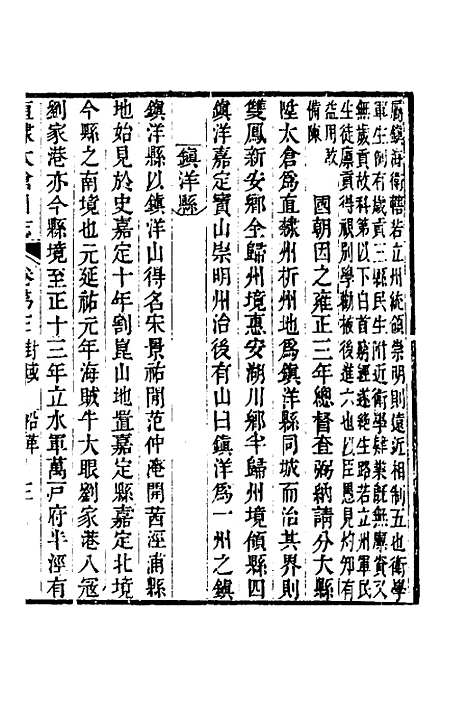 屬鎮海衛轄若立州統領崇明則遠近相制五也衛學
軍生例有歲貢三縣民生附近衛學肄業旣無廩資又
無歲貢故科第以下白首窮經遂絶生路若立州軍民
生徒廩貢得視別學勸被後進六也以臣愚見灼知有
益用敢
備陳　國朝因之雍正三年總督查弼納請分大縣
陞太倉爲直隸州析州地爲鎮洋縣同城而治其界則
雙鳳新安鄉全歸州境惠安湖川鄉半歸州境傾縣四
鎮洋嘉定寶山崇明州治後有山曰鎮洋爲一州之鎮
鎮洋縣
鎮洋縣以鎮洋山得名宋景祐閒范仲淹開茜涇浦縣
地始見於史嘉定十年割崑山地置嘉定縣嘉定北境
今縣之南境也元延祐元年海賊牛大眼劉家港八寇
劉家港亦今縣境至正十三年立水軍萬戸府半涇有
直隸太倉州志
卷第三　封域　沿革　三